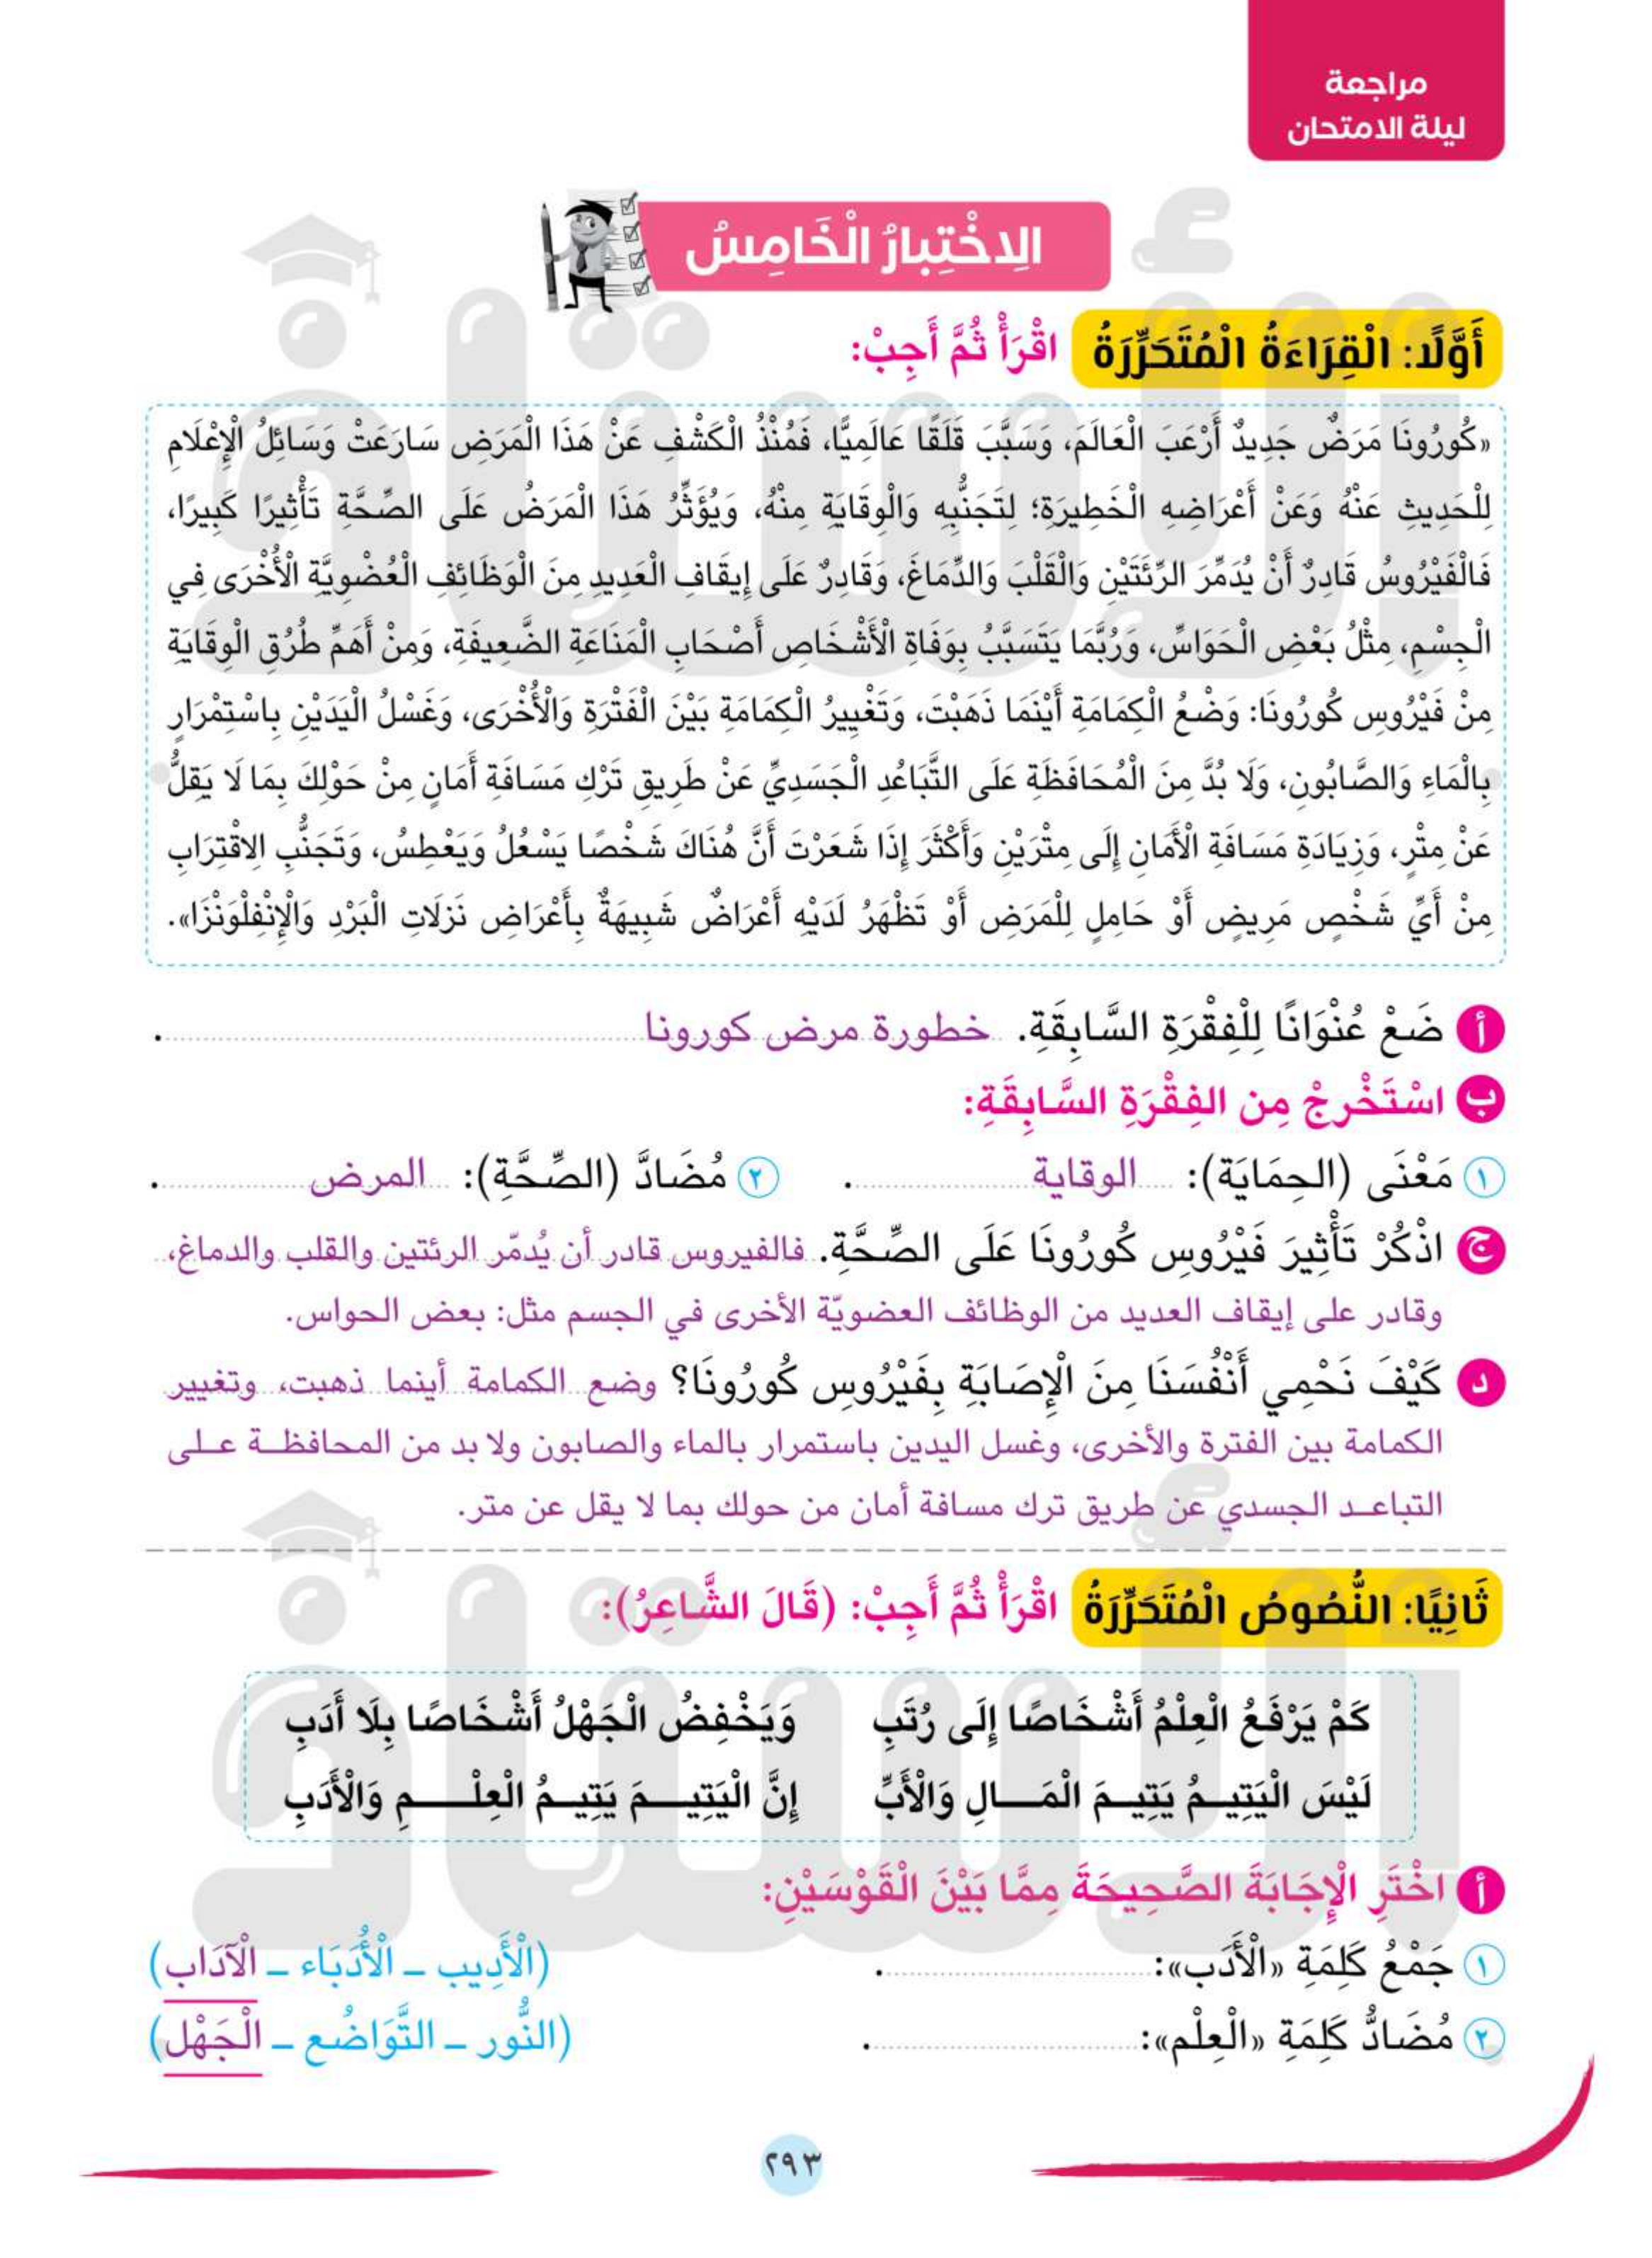 مراجعة
ليلة الامتحان
الِاخْتِبارُ الْخَامِسُ
أَوَّلًا: الْقِرَاءَةُ الْمُتَحَرِّرَةُ اقْرَأْ ثُمَّ أَجِبْ:
«كُورُونَا مَرَضٌ جَدِيدٌ أَرْعَبَ الْعَالَمَ، وَسَبَّبَ قَلَقًا عَالَمِيًّا، فَمُنْذُ الْكَشْفِ عَنْ هَذَا الْمَرَضِ سَارَعَتْ وَسَائِلُ الْإِعْلَامِ
لِلْحَدِيثِ عَنْهُ وَعَنْ أَعْرَاضِهِ الْخَطِيرَةِ؛ لِتَجَنُّبِهِ وَالْوِقَايَةِ مِنْهُ، وَيُؤَثِّرُ هَذَا الْمَرَضُ عَلَى الصِّحَّةِ تَأْثِيرًا كَبِيرًا،
فَالْفَيْرُوسُ قَادِرٌ أَنْ يُدَمِّرَ الرِّئَتَيْنِ وَالْقَلْبَ وَالدِّمَاغَ، وَقَادِرٌ عَلَى إِيقَافِ الْعَدِيدِ مِنَ الْوَظَائِفِ الْعُضْوِيَّةِ الْأُخْرَى فِي
الْجِسْمِ، مِثْلُ بَعْضِ الْحَوَاسِّ، وَرُبَّمَا يَتَسَبَّبُ بِوَفَاةِ الْأَشْخَاصِ أَصْحَابِ الْمَنَاعَةِ الضَّعِيفَةِ، وَمِنْ أَهَمِّ طُرُقِ الْوِقَايَةِ
مِنْ فَيْرُوسِ كُورُونَا: وَضْعُ الْكِمَامَةِ أَيْنَمَا ذَهَبْتَ، وَتَغْيِيرُ الْكِمَامَةِ بَيْنَ الْفَتْرَةِ وَالْأُخْرَى، وَغَسْلُ الْيَدَيْنِ بِاسْتِمْرَارٍ
بِالْمَاءِ وَالصَّابُونِ، وَلَا بُدَّ مِنَ الْمُحَافَظَةِ عَلَى التَّبَاعُدِ الْجَسَدِيِّ عَنْ طَرِيقِ تَرْكِ مَسَافَةِ أَمَانٍ مِنْ حَوْلِكَ بِمَا لَا يَقِلُّ
عَنْ مِتْرٍ، وَزِيَادَةِ مَسَافَةِ الْأَمَانِ إِلَى مِتْرَيْنِ وَأَكْثَرَ إِذَا شَعَرْتَ أَنَّ هُنَاكَ شَخْصًا يَسْعُلُ وَيَعْطِسُ، وَتَجَنُّبِ الِاقْتِرَابِ
مِنْ أَيِّ شَخْصٍ مَرِيضٍ أَوْ حَامِلٍ لِلْمَرَضِ أَوْ تَظْهَرُ لَدَيْهِ أَعْرَاضٌ شَبِيهَةٌ بِأَعْرَاضِ نَزَلَاتِ الْبَرْدِ وَالْإِنْفِلْوَنْزَا».
أ ضَعْ عُنْوَانًا لِلْفِقْرَةِ السَّابِقَةِ. خطورة مرض كورونا .
ب اسْتَخْرِجْ مِن الفِقْرَةِ السَّابِقَةِ:
١ مَعْنَى (الحِمَايَة): الوقاية . ٢ مُضَادَّ (الصِّحَّةِ): المرض .
ج اذْكُرْ تَأْثِيرَ فَيْرُوسِ كُورُونَا عَلَى الصِّحَّةِ. فالفيروس قادر أن يُدمّر الرئتين والقلب والدماغ،
وقادر على إيقاف العديد من الوظائف العضويّة الأخرى في الجسم مثل: بعض الحواس.
د كَيْفَ نَحْمِي أَنْفُسَنَا مِنَ الْإِصَابَةِ بِفَيْرُوسِ كُورُونَا؟ وضع الكمامة أينما ذهبت، وتغيير
الكمامة بين الفترة والأخرى، وغسل اليدين باستمرار بالماء والصابون ولا بد من المحافظة على
التباعد الجسدي عن طريق ترك مسافة أمان من حولك بما لا يقل عن متر.
ثَانِيًا: النُّصُوصُ الْمُتَحَرِّرَةُ اقْرَأْ ثُمَّ أَجِبْ: (قَالَ الشَّاعِرُ):
كَمْ يَرْفَعُ الْعِلْمُ أَشْخَاصًا إِلَى رُتَبِ وَيَخْفِضُ الْجَهْلُ أَشْخَاصًا بِلَا أَدَبِ
لَيْسَ الْيَتِيمُ يَتِيمَ الْمَالِ وَالْأَبِّ إِنَّ الْيَتِيمَ يَتِيمُ الْعِلْمِ وَالْأَدَبِ
أ اخْتَرِ الْإِجَابَةَ الصَّحِيحَةَ مِمَّا بَيْنَ الْقَوْسَيْنِ:
١ جَمْعُ كَلِمَةِ «الْأَدَب»: . (الْأَدِيب – الْأُدَبَاء – الْآدَاب)
٢ مُضَادُّ كَلِمَةِ «الْعِلْم»: . (النُّور – التَّوَاضُع – الْجَهْل)
٢٩٣
الأستاذ
الأستاذ